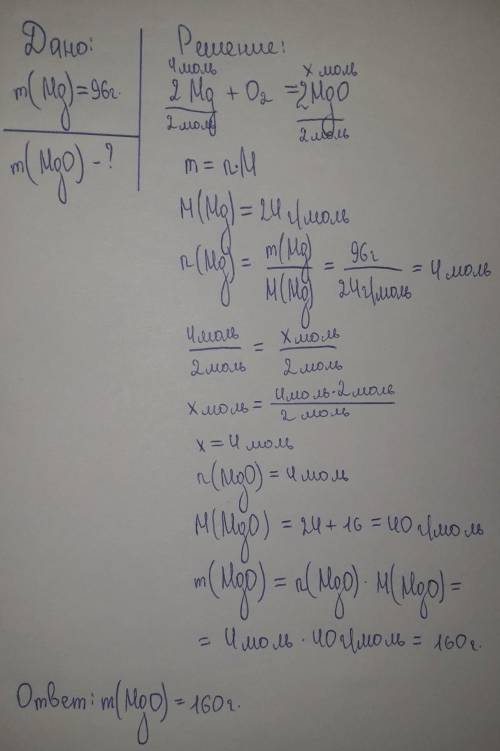 Дано:
m(Mg)=96г.
m(MgO)-?
Решение:
4моль x моль
2Mg + O₂ = 2MgO
2моль 2моль
m = n·M
M(Mg) = 24г/моль
n(Mg) = m(Mg)/M(Mg) = 96г/24г/моль = 4моль
4моль/2моль = xмоль/2моль
xмоль = 4моль·2моль/2моль
x = 4моль
n(MgO) = 4моль
M(MgO) = 24+16 = 40г/моль
m(MgO) = n(MgO)·M(MgO) =
= 4моль·40г/моль = 160г.
Ответ: m(MgO) = 160г.